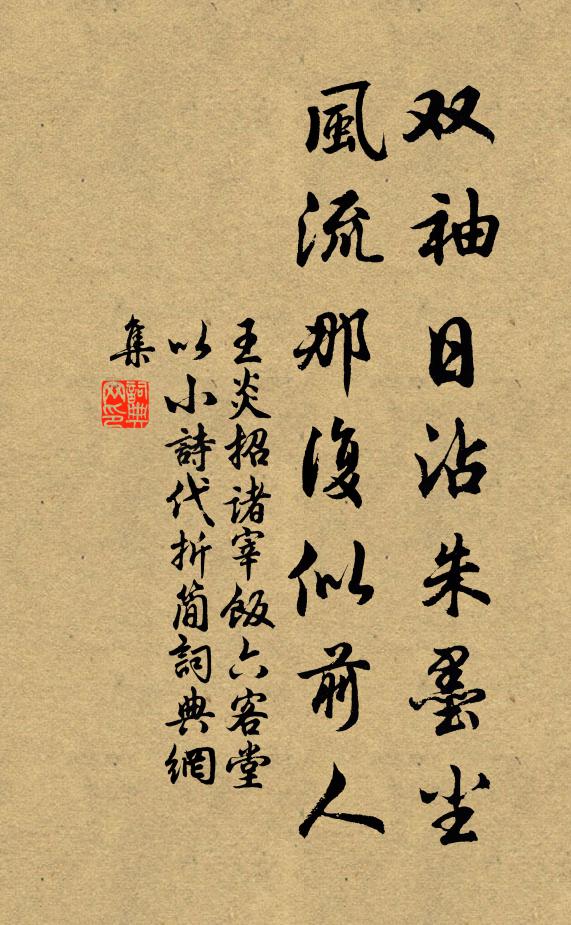 双袖日沾朱墨尘
風流那復似前人
王炎招诸宰飯六客堂
以小詩代折简詞典網
集
詞典
网印